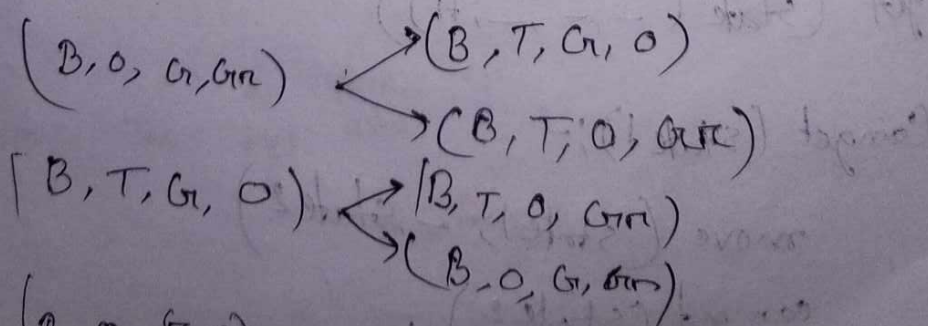 (B, O, G, Gr) → (B, T, G, O)
→ (B, T, O, Gr)
[B, T, G, O) → [B, T, O, Gr)
→ (B, O, G, Gr)